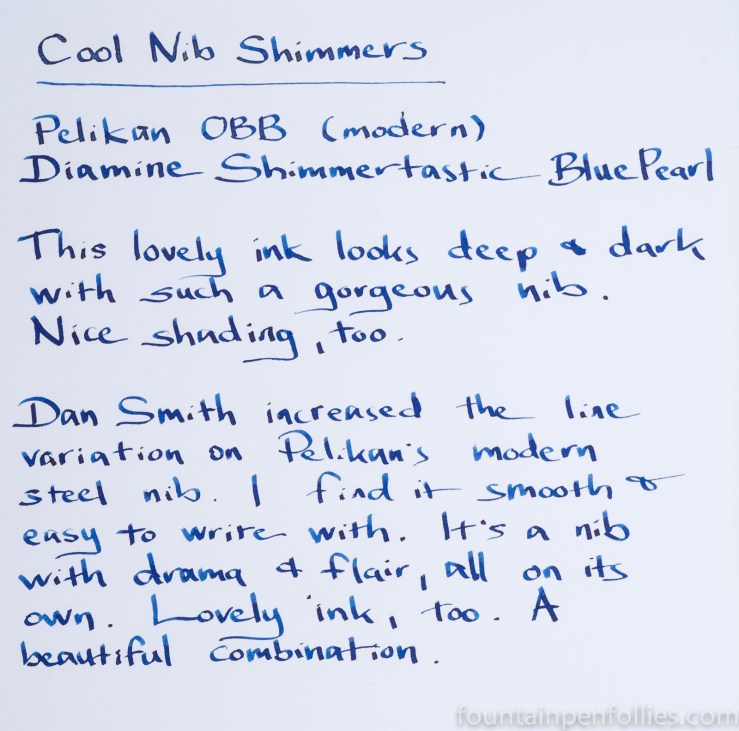 Cool Nib Shimmers
Pelikan OBB (modern)
Diamine Shimmertastic Blue Pearl
This lovely ink looks deep & dark
with such a gorgeous nib.
Nice shading, too.
Dan Smith increased the line
variation on Pelikan's modern
steel nib. I find it smooth &
easy to write with. It's a nib
with drama & flair, all on its
own. Lovely ink, too. A
beautiful combination.
fountainpenfollies.com